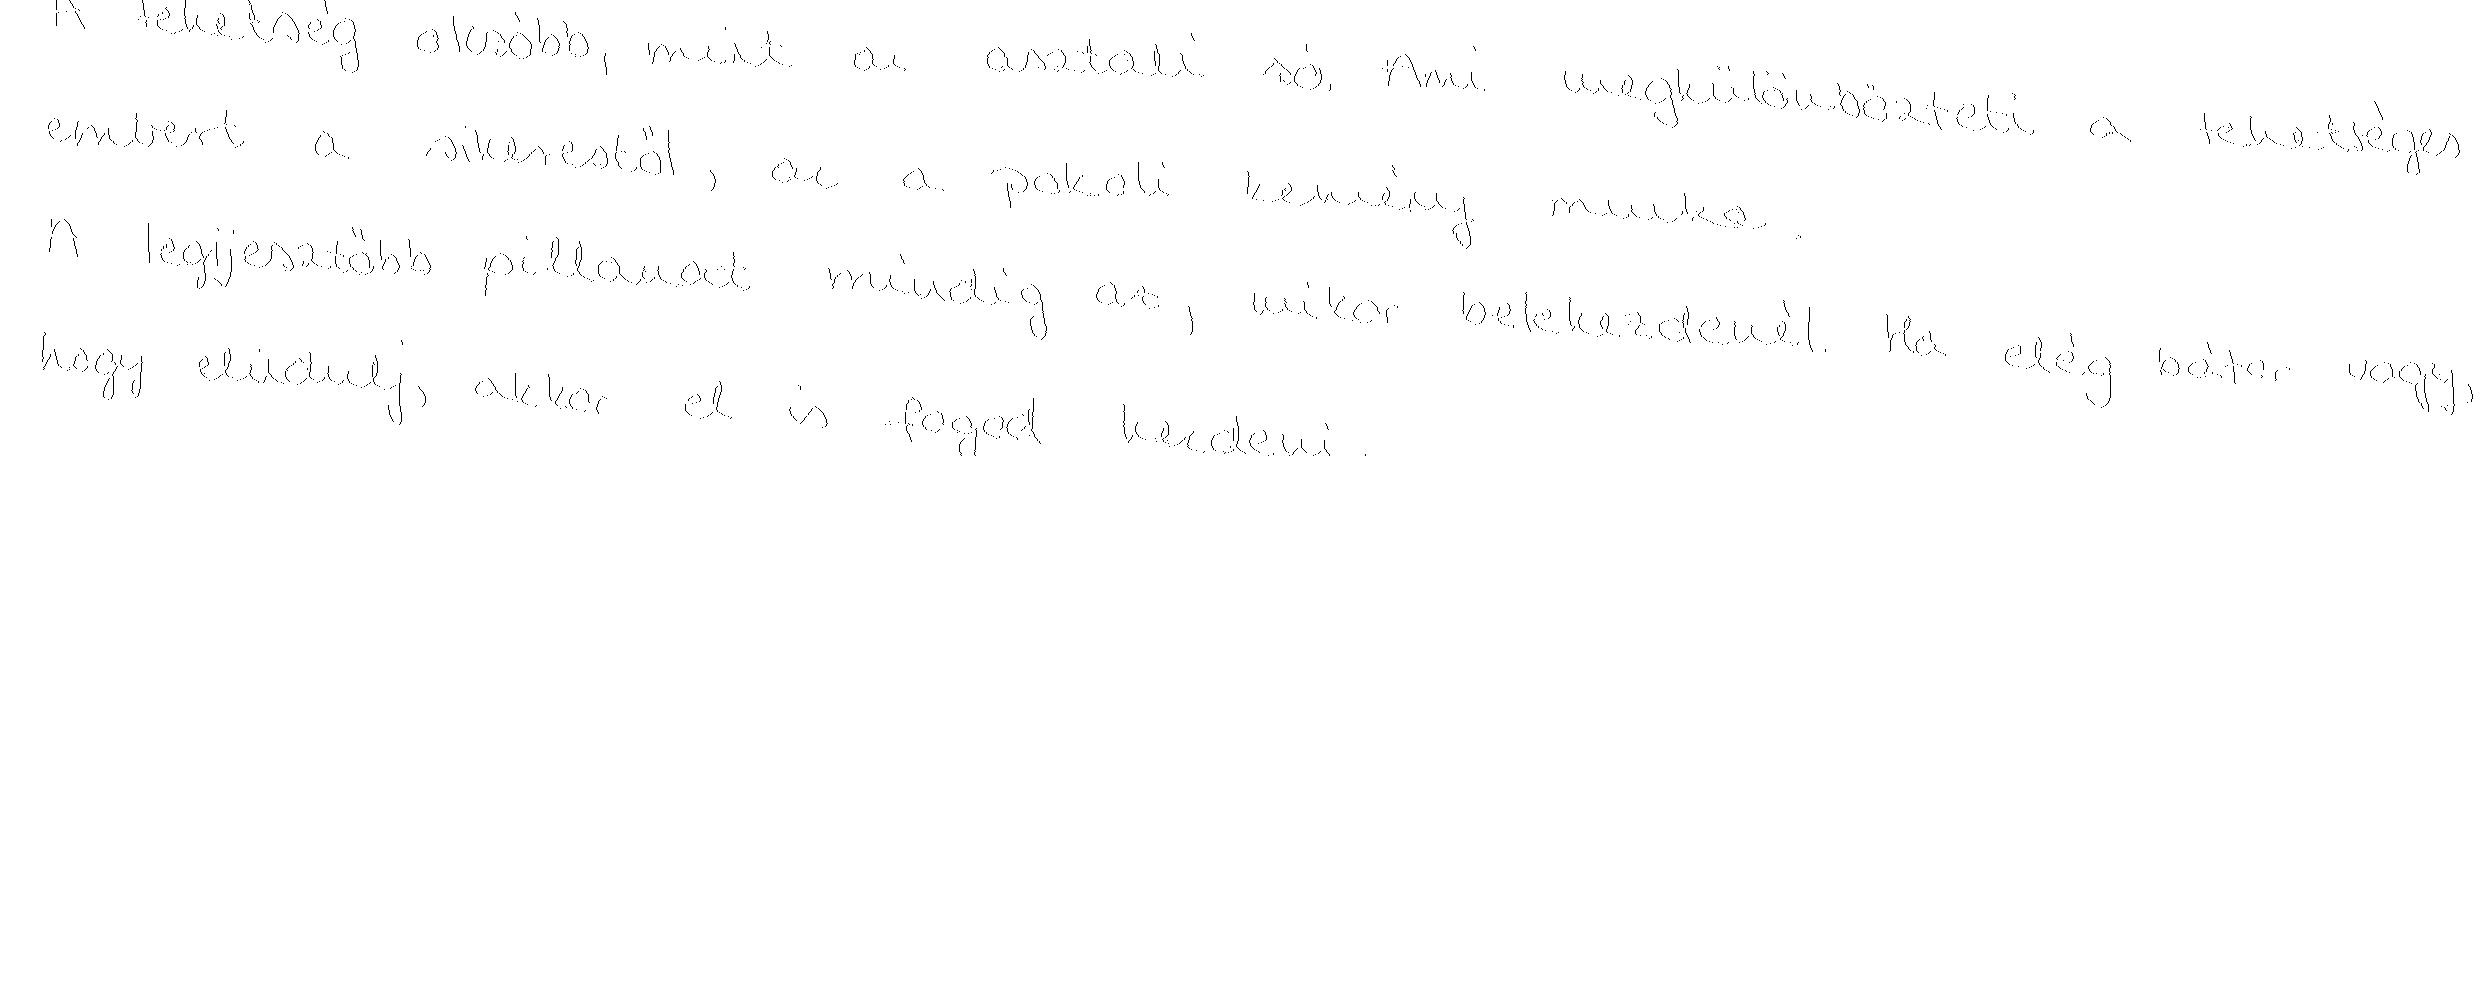 A tehetség olcsóbb, mint az asztali só. Ami megkülönbözteti a tehetséges
embert a sikerestől, az a pokoli kemény munka.
A legijesztőbb pillanat mindig az, mikor belekezdenél. Ha elég bátor vagy,
hogy elindulj, akkor el is fogod kezdeni.